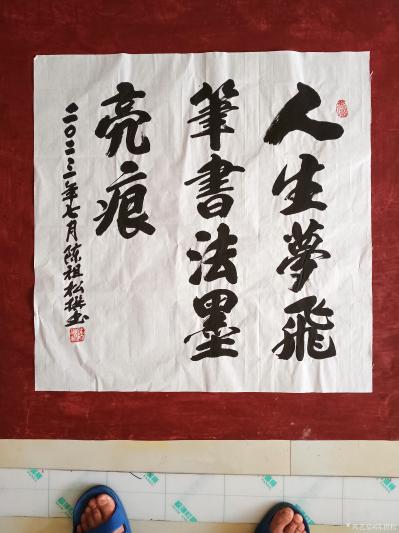 人生夢飛
筆書法墨
亮痕
二〇二三年七月陈祖松书